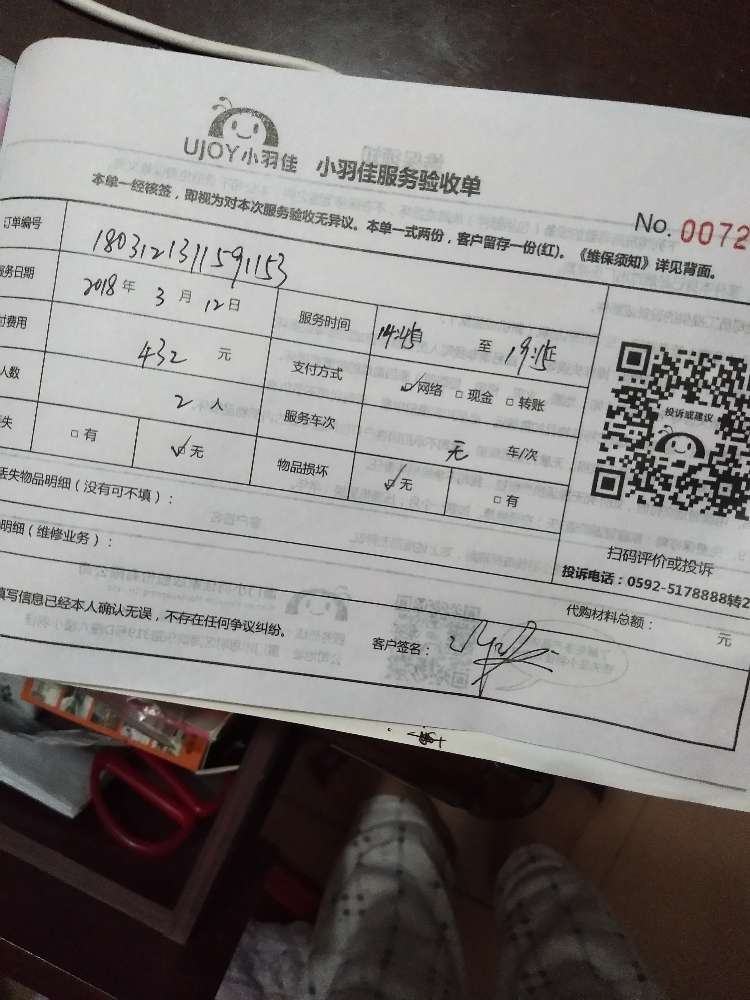 UJOY小羽佳 小羽佳服务验收单
No. 0072
本单一经核签，即视为对本次服务验收无异议。本单一式两份，客户留存一份(红)。《维保须知》详见背面。
订单编号 1803121311591153
服务日期 2018年3月12日 服务时间 14:45 至 19:15
付费用 432 元 支付方式 ☑网络 □现金 □转账
人数 2 人 服务车次 无 车/次
失 □有 ☑无 物品损坏 ☑无 □有
投诉或建议
扫码评价或投诉
投诉电话：0592-5178888转2
丢失物品明细（没有可不填）：
明细（维修业务）：
代购材料总额： 元
填写信息已经本人确认无误，不存在任何争议纠纷。
客户签名：